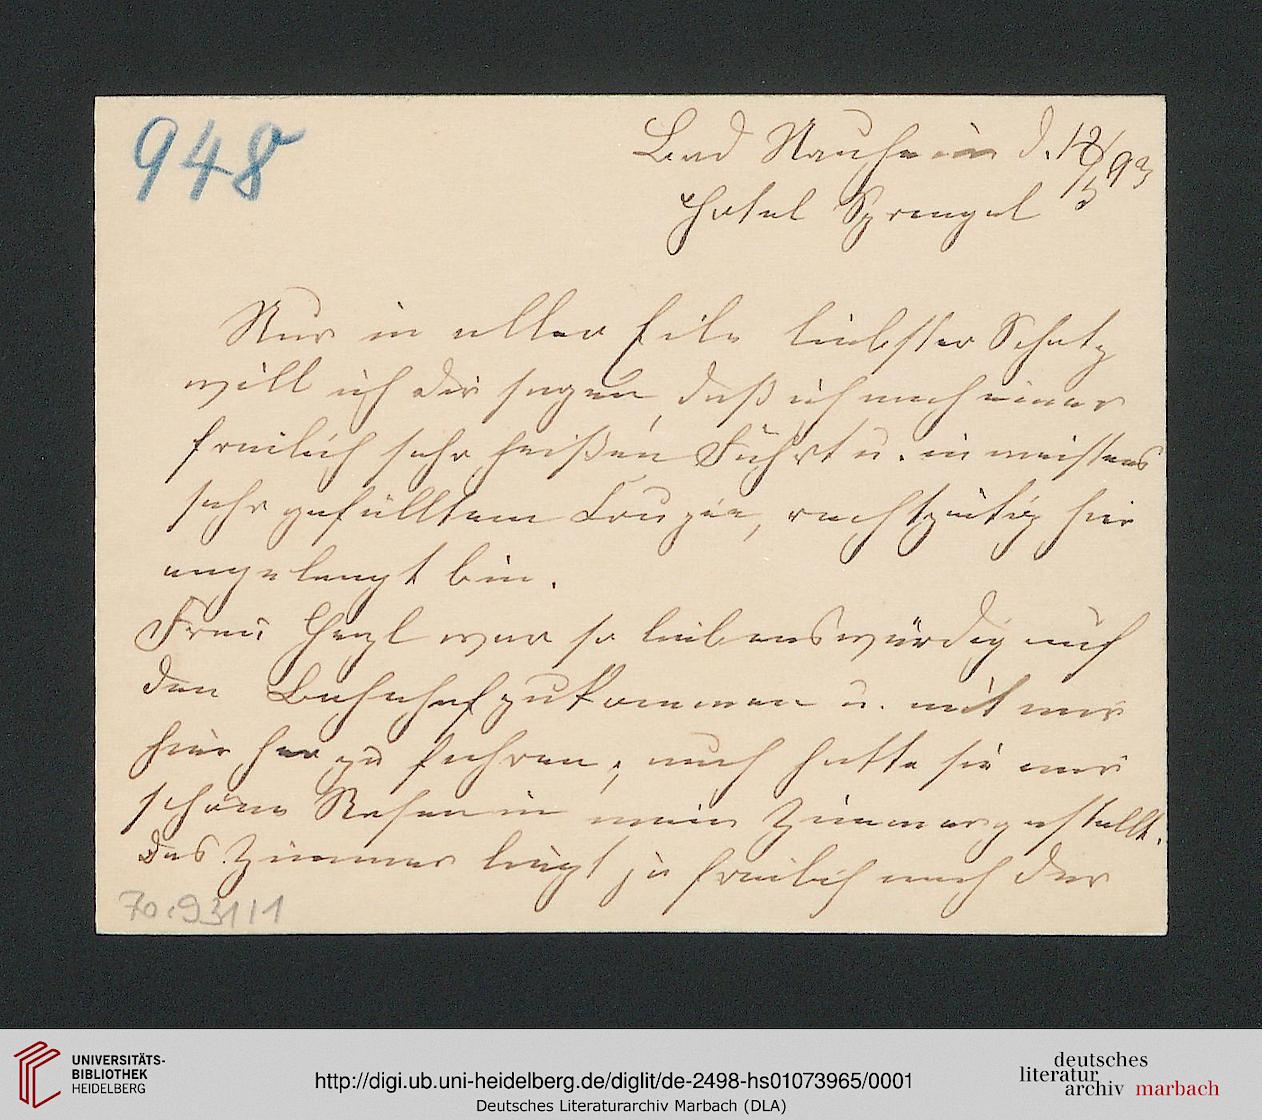 948
Bad Nauheim d. 18/5 93
Hotel Sprengel
Nur in aller Eile liebster Schatz
will ich dir sagen, daß ich nach einer
freilich sehr heißen Fahrt u. in meistens
sehr gefülltem Coupée, rechtzeitig hier
angelangt bin.
Frau Hezl war so liebenswürdig auf
den Bahnhof zu kommen u. mit mir
hier her zu fahren, auch hatte sie mir
schöne Rosen in mein Zimmer gestellt.
Das Zimmer liegt ja freilich nach der
70.931/1
UNIVERSITÄTS-
BIBLIOTHEK
HEIDELBERG
http://digi.ub.uni-heidelberg.de/diglit/de-2498-hs01073965/0001
Deutsches Literaturarchiv Marbach (DLA)
deutsches
literatur
archiv marbach